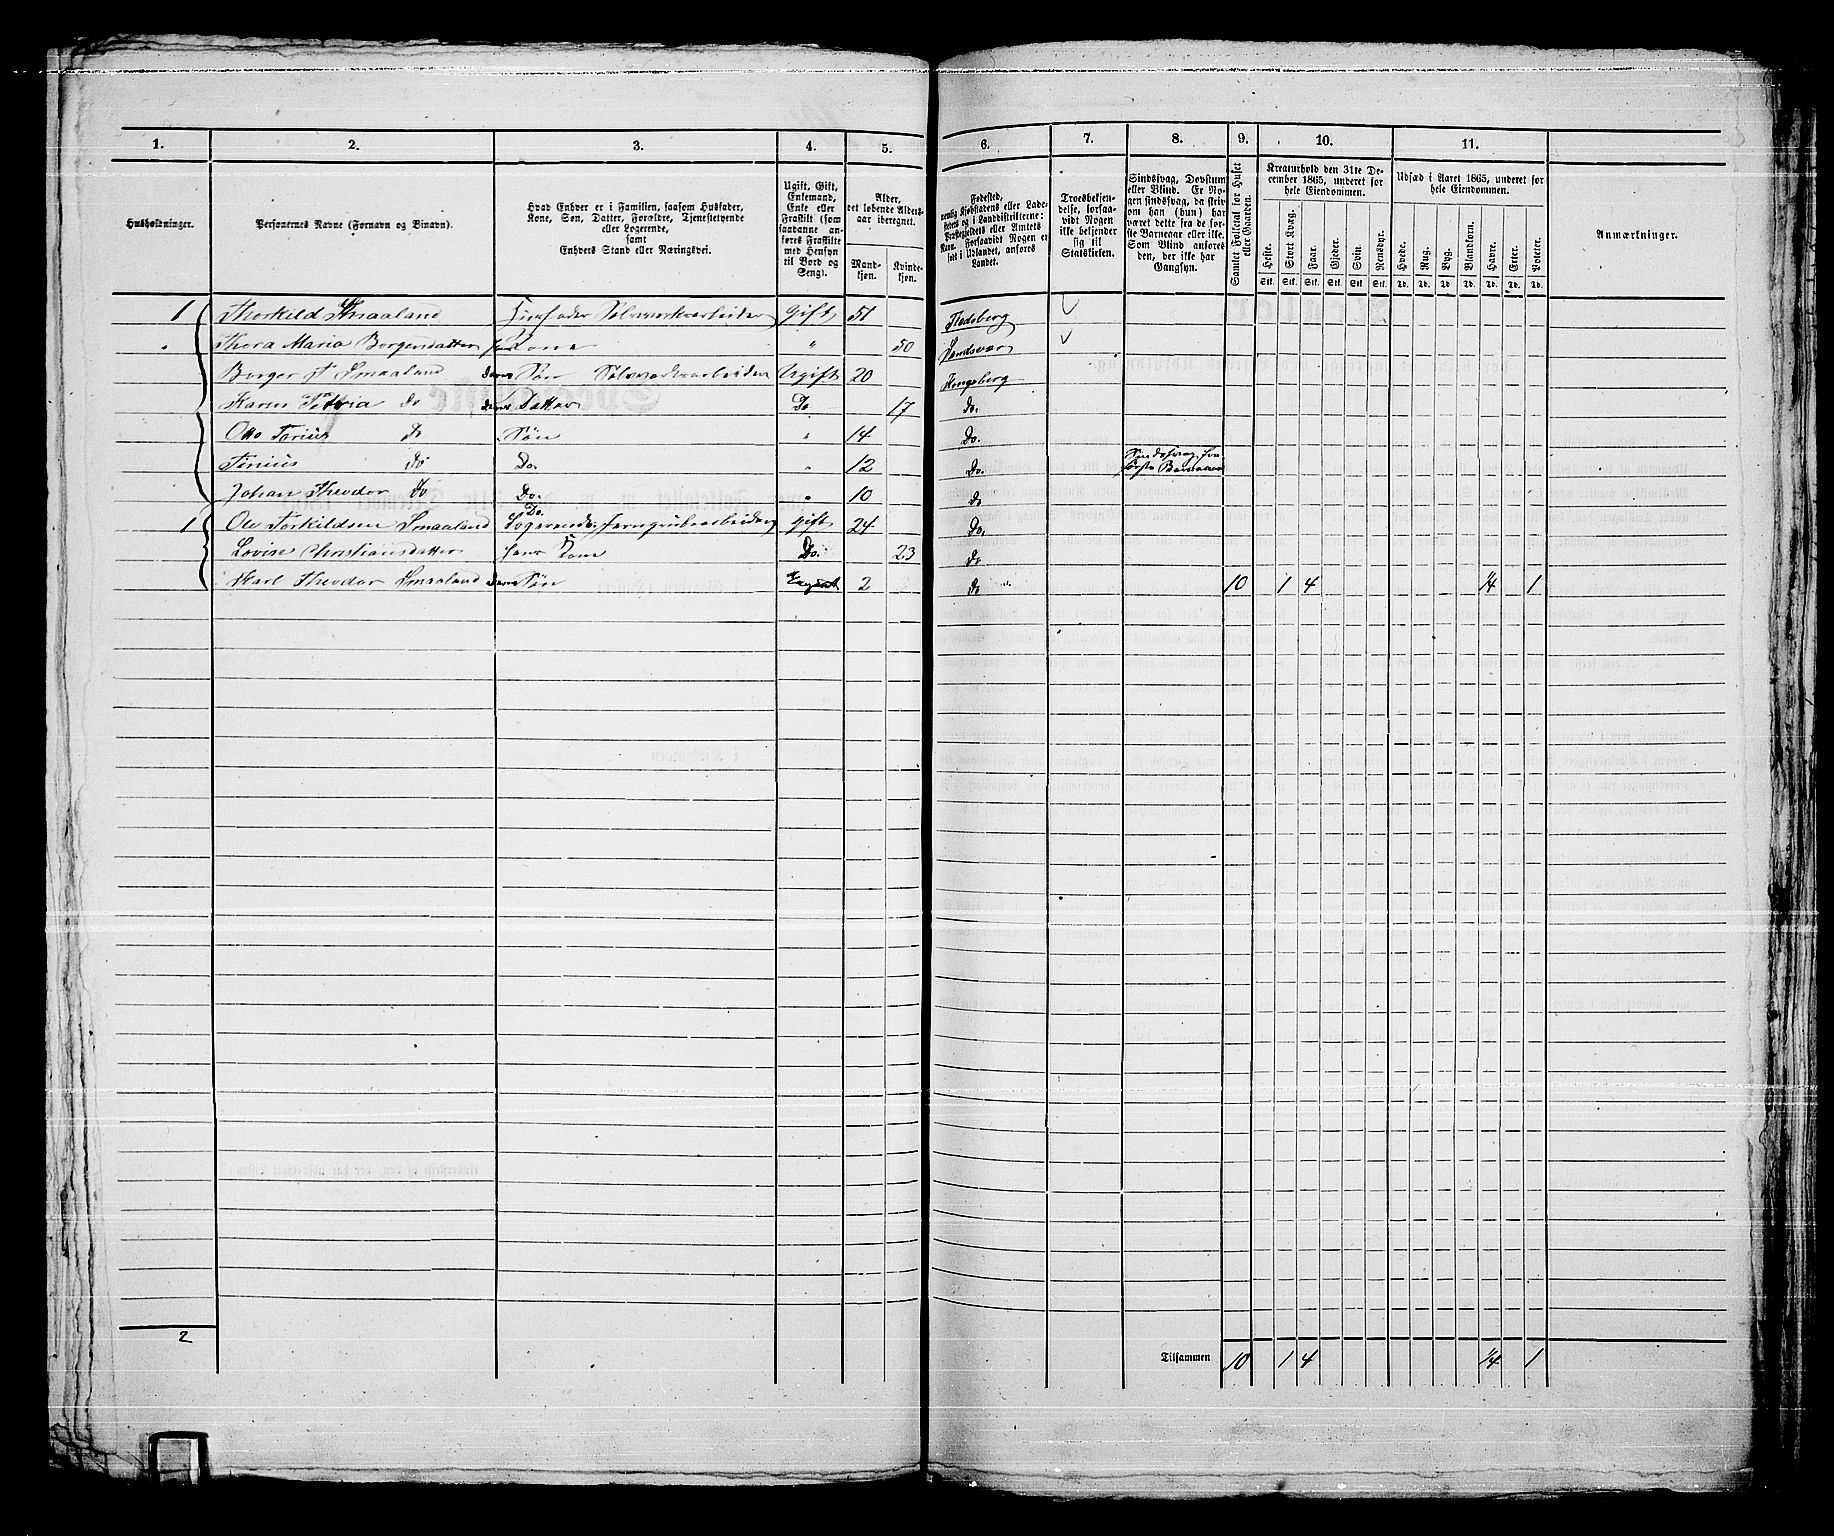 1. 2. 3. 4. 5. 6. 7. 8. 9. 10. 11.
Husholdninger.
Personernes Navne (Fornavn og Binavn).
Hvad Enhver er i Familien, saasom Husfader,
Kone, Søn, Datter, Forældre, Tjenestetyende
eller Logerende,
samt
Enhvers Stand eller Næringsvei.
Ugift, Gift,
Enkemand,
Enke eller
Fraskilt (som
saadanne an-
føres Fraskilte
med Hensyn
til Bord og
Seng).
Alder,
det løbende Alders-
aar iberegnet.
Mand-
kjøn.
Kvinde-
kjøn.
Fødested,
nemlig Kjøbstadens eller Lade-
stedets og i Landdistrikterne:
Præstegjeldets eller Amtets
Navn. Forsaavidt Nogen er
født i Udlandet, anføres
Landet.
Troesbekjen-
delse, forsaa-
vidt Nogen
ikke bekjender
sig til
Statskirken.
Sindssvag, Døvstum
eller Blind. Er No-
gen sindssvag, da skriv
om han (hun) har
været dette fra de før-
ste Barneaar eller ikke.
Som Blind anføres
den, der ikke har
Gangsyn.
Samlet Folketal for Huset
eller Gaarden.
Kreaturhold den 31te De-
cember 1865, underet for
hele Eiendommen.
Heste. Stort Kvæg. Faar. Gjeder. Svin. Rensdyr.
Stk. Stk. Stk. Stk. Stk. Stk.
Udsæd i Aaret 1865, underet for
hele Eiendommen.
Hvede. Rug. Byg. Blandkorn. Havre. Erter. Poteter.
Td. Td. Td. Td. Td. Td. Td.
Anmærkninger.
1 Thorkild Smaaland Husfader Sølvverksarbeider Gift 51 Flesberg
Thora Maria Borgersdatter hans Kone " 50 Sandsvær
Borger T Smaaland deres Søn Sølvverksarbeider Ugift 20 Kongsberg
Karen Do deres Datter Do 17 Do.
Otto Do Søn " 14 Do.
Tinius Do Do. " 12 Do. Sindssvag fra første Barneaar
Johan Theodor Do Do. " 10 Do
1 Ole Torkildsen Smaaland Do. Logerende, Jerngrubearbeider Gift 24 Do.
Lovise Christiansdatter hans Kone Do. 23 Do
Karl Theodor Smaaland deres Søn 2 Do 10 1 4 1/4 1
2 Tilsammen 10 1 4 1/4 1